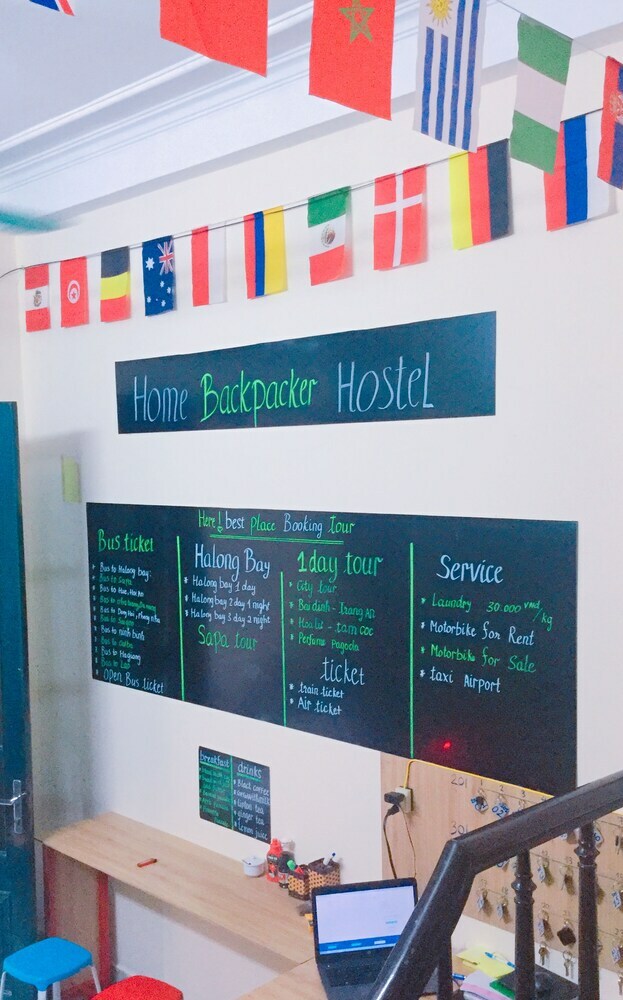 Home Backpacker Hostel
Here! best place Booking tour
Bus ticket
* Bus to Halong bay
* Bus to Sapa
* Bus to Hue, Hoi An
* Bus to
* Bus to Dong Hoi,
* Bus to
* Bus to ninh binh
* Bus to
* Bus to Hagiang
* Bus to Lao
* Open Bus ticket
Halong Bay
* Halong bay 1 day
* Halong bay 2 day 1 night
* Halong bay 3 day 2 night
Sapa tour
1 day tour
* City tour
* Bai dinh - Trang An
* Hoa lu - tam coc
* Perfume pagoda
ticket
* train ticket
* Air ticket
Service
* Laundry 30.000 vnd/kg
* Motorbike for Rent
* Motorbike for Sale
* taxi Airport
breakfast
drinks
* Black coffee
* lipton tea
* ginger tea
* Lemon juice
201